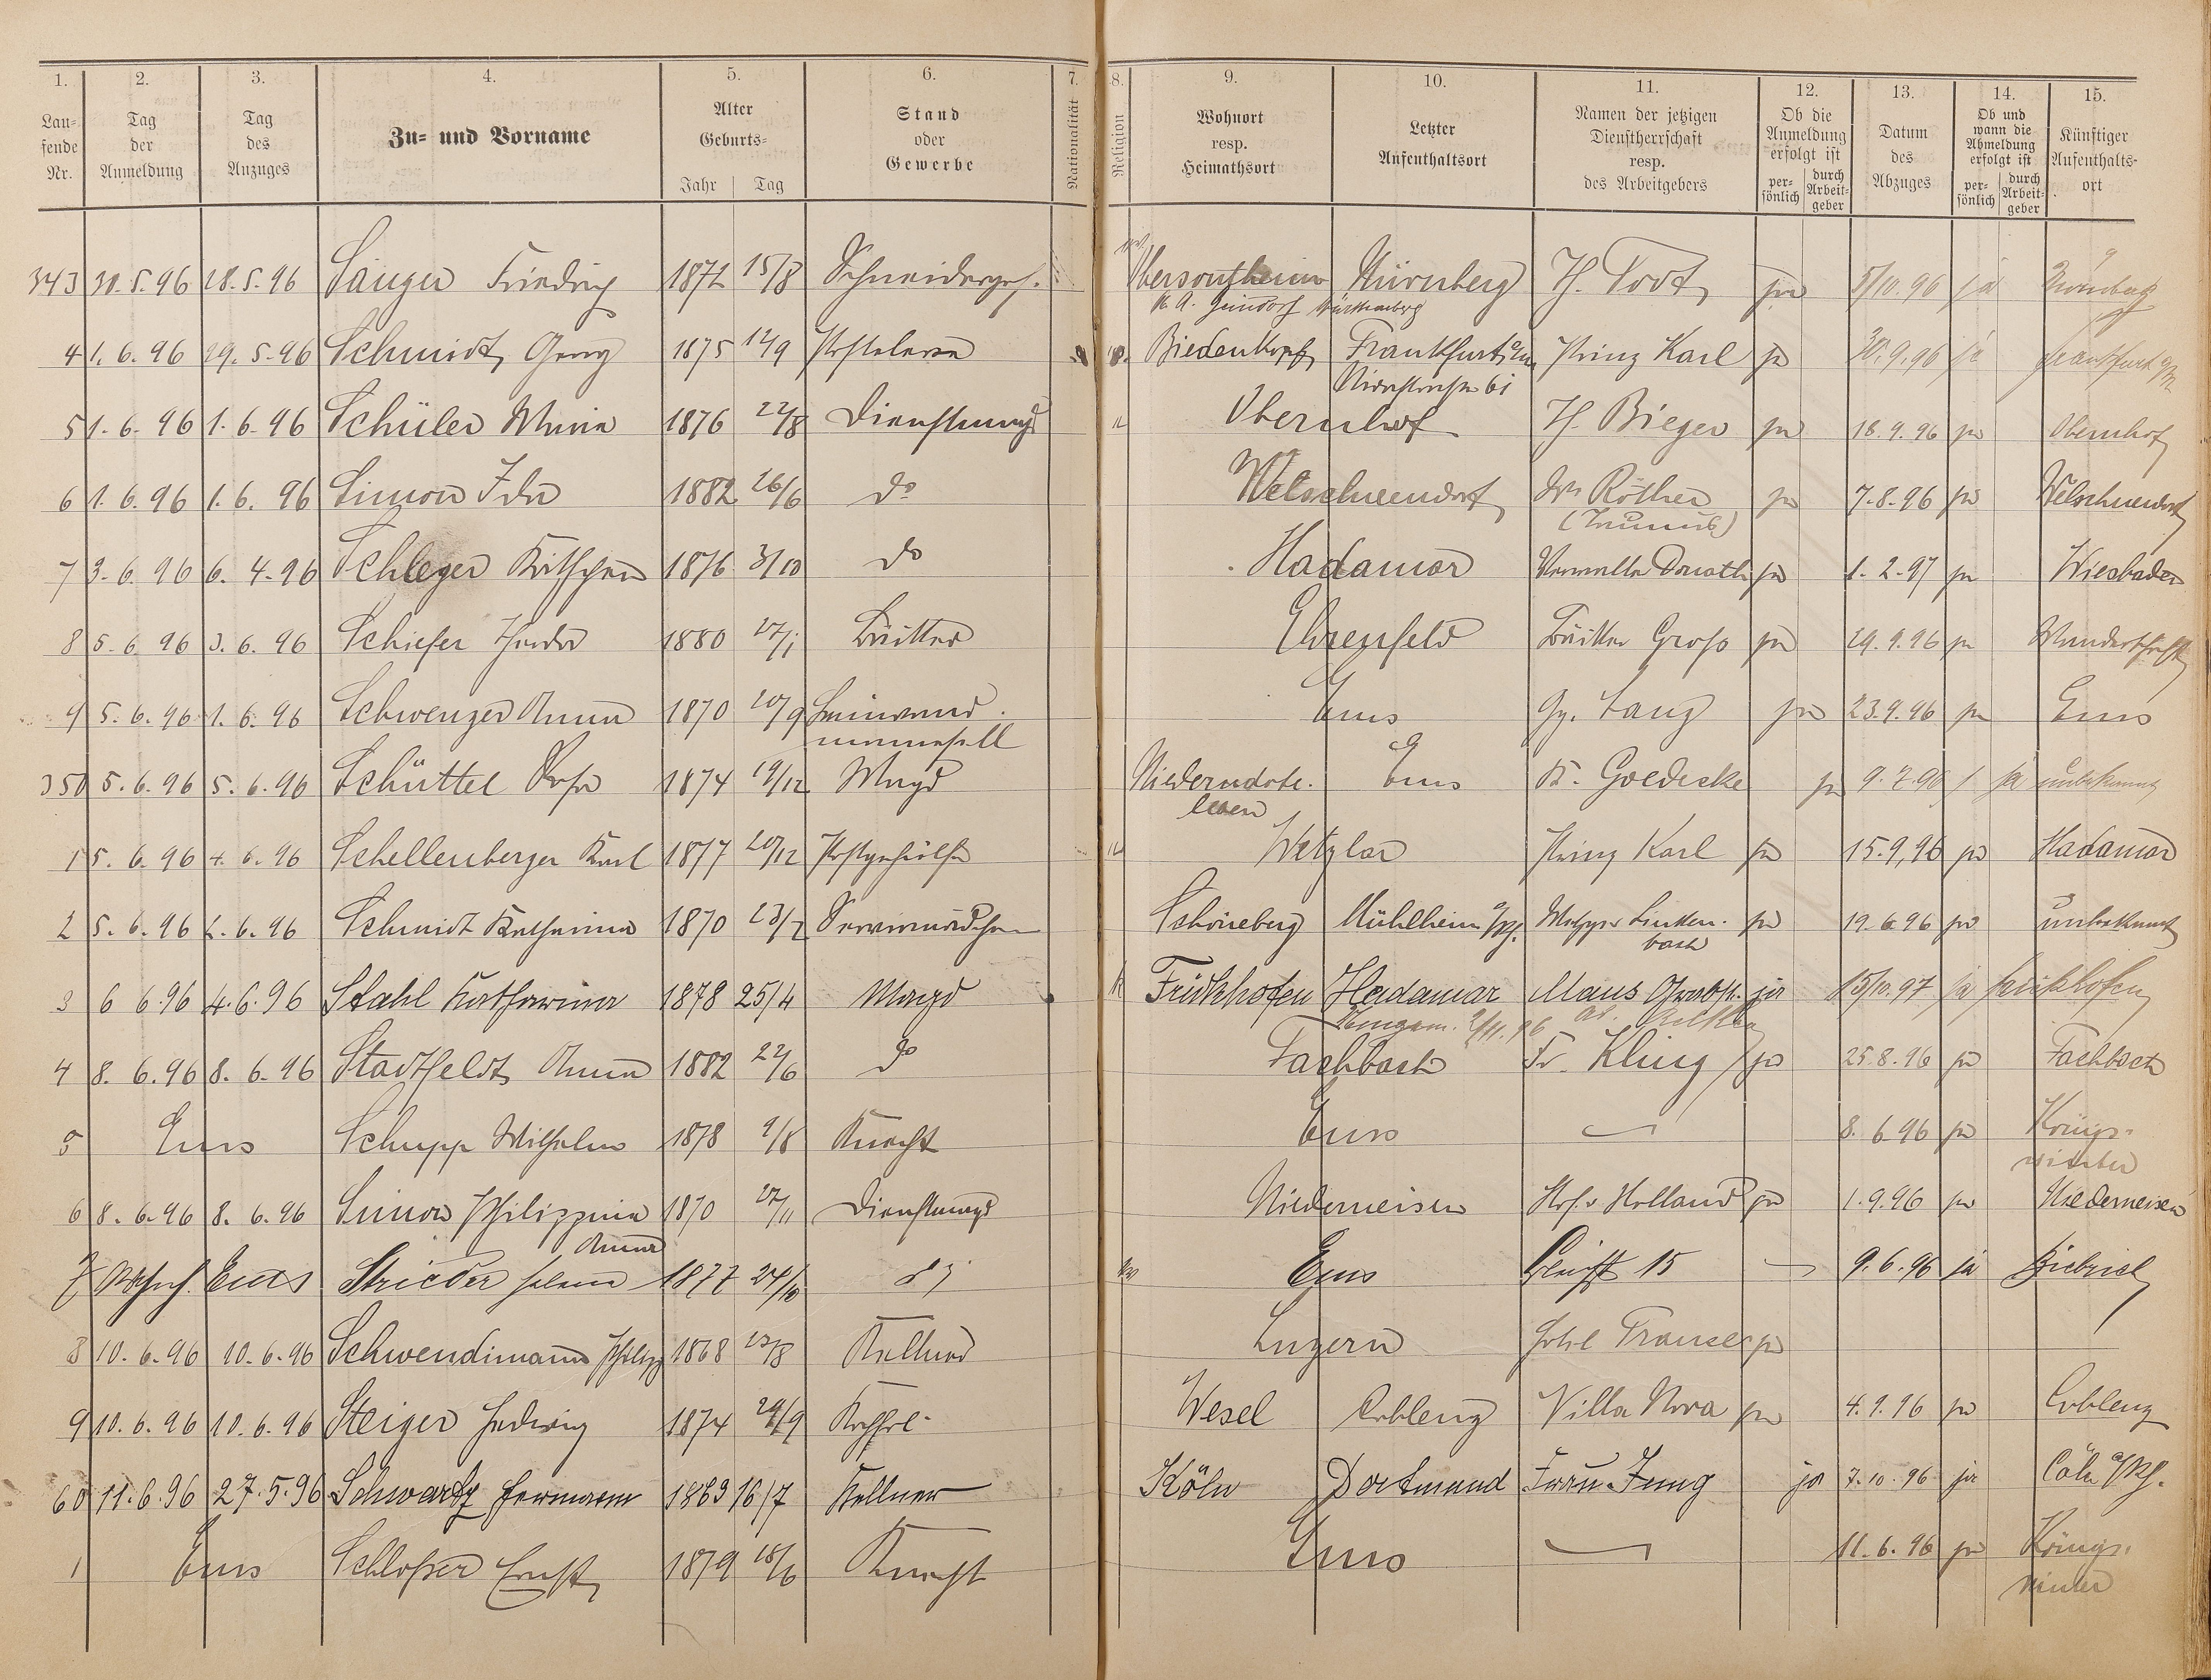 1. 2. 3. 4. 5. 6. 7. 8. 9. 10. 11. 12. 13. 14. 15.
Lau-fende Nr. Tag der Anmeldung Tag des Anzuges Zu- und Vorname Alter Geburts- Jahr Tag Stand oder Gewerbe Nationalität Religion Wohnort resp. Heimathsort Letzter Aufenthaltsort Namen der jetzigen Dienstherrschaft resp. des Arbeitgebers Ob die Anmeldung erfolgt ist per-sönlich durch Arbeit-geber Datum des Abzuges Ob und wann die Abmeldung erfolgt ist per-sönlich durch Arbeit-geber Künftiger Aufenthalts-ort
343 30.5.96 28.5.96 Sänger Friedrich 1872 15/8 Schneiderges. Obersontheim Nürnberg H. Todt ja 5/10.96 ja Nürnberg
Württemberg
4 1.6.96 29.5.96 Schmidt Georg 1875 12/9 Biedenkopf Frankfurt a/M Prinz Karl ja 30.9.96 ja Frankfurt a/M
5 1.6.96 1.6.96 Schüler Maria 1876 22/8 Dienstmagd Obernhof H. Bieger ja 18.9.96 ja Obernhof
6 1.6.96 1.6.96 Simon Ida 1882 26/6 do Welschneendorf Röther ja 7.8.96 ja Welschneudorf
(Taunus)
7 3.6.96 6.4.96 Schleger Käthchen 1876 3/10 do Hadamar Verwalter Donath ja 1.2.97 ja Wiesbaden
8 5.6.96 3.6.96 Schiefer 1880 27/1 Bäcker Ehrenfeld Bäcker Groß ja 29.9.96 ja Wanderschaft
9 5.6.96 1.6.96 Schwenzer Anna 1870 20/9 Ems Gg. Lang ja 23.9.96 ja Ems
350 5.6.96 5.6.96 Schüttel Rosa 1874 19/12 Magd Niederndode- Ems K. Goedecke ja 9.7.96 ja unbekannt
leben
1 5.6.96 4.6.96 Schellenberger Karl 1877 20/12 Postgehülfe Wetzlar Prinz Karl ja 15.9.96 ja Hadamar
2 5.6.96 2.6.96 Schmidt Katharina 1870 23/7 Serviermädchen Schöneberg Mühlheim a/Rh. Metzger Linken- ja 19.6.96 ja unbekannt
bach
3 6 6.96 4.6.96 Stahl Katharina 1878 25/4 Magd Frickhofen Hadamar Maus Grabstr. ja 15/10.97 ja Frickhofen
2/11.96
4 8.6.96 8.6.96 Stadtfeldt Anna 1882 22/6 do Fachbach Fr. Kling ja 25.8.96 ja Fachbach
5 Ems Schupp Wilhelm 1878 9/8 Knecht Ems — 8.6.96 ja Königs-
winter
6 8.6.96 8.6.96 Simon Philippina 1870 27/11 Dienstmagd Niederneisen Hof v. Holland ja 1.9.96 ja Niederneisen
Anna
7 Ems Strieder Helena 1877 24/10 Ems Bleichst. 15 — 9.6.96 ja Biebrich
8 10.6.96 10.6.96 Schwendimann Philipp 1868 23/8 Kellner Luzern Hotel ja
9 10.6.96 10.6.96 Steiger Hedwig 1874 29/9 Wesel Coblenz Villa Nova ja 4.9.96 ja Coblenz
60 11.6.96 27.5.96 Schwartz Hermann 1869 16/7 Kellner Köln Dortmund Frau Jung ja 7.10.96 ja Cöln a/Rh.
1 Ems Schloßer Ernst 1879 18/6 Knecht Ems — 11.6.96 ja Königs-
winter